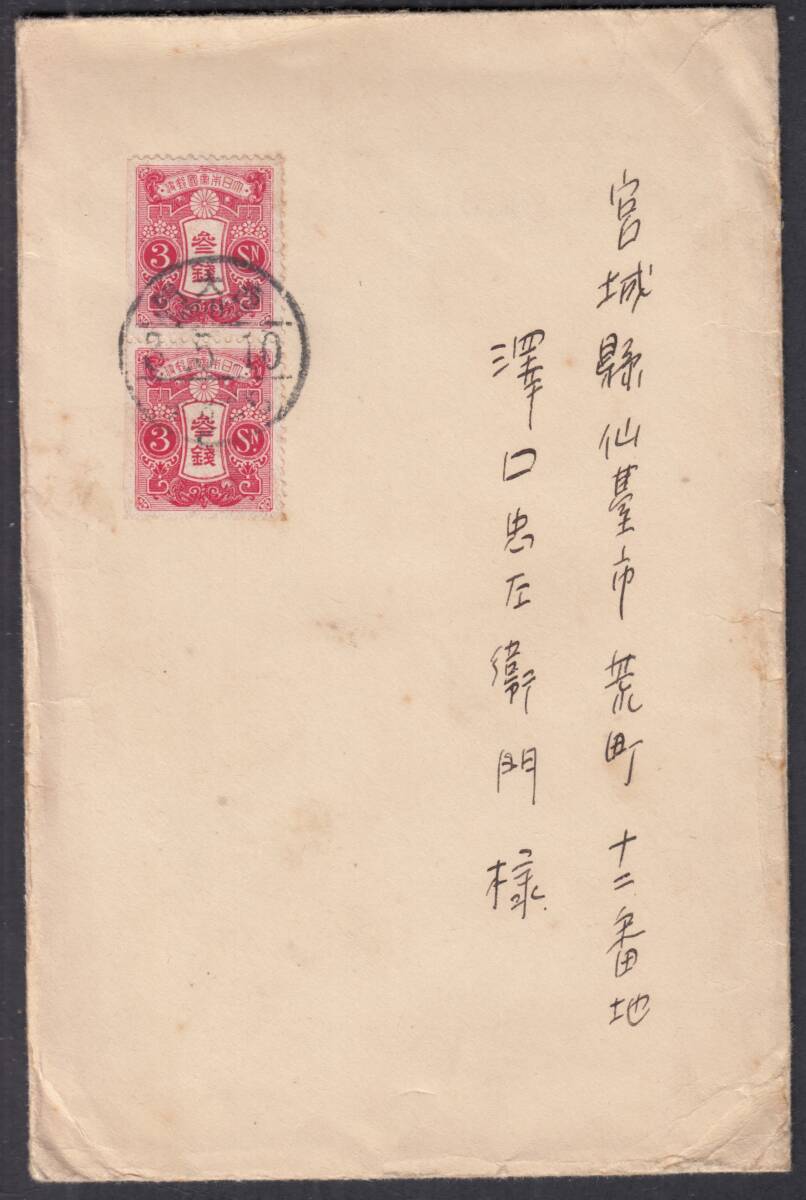 宮城縣仙臺市荒町十二番地
澤口忠左衛門様
大日本帝國郵便
3 参錢 SN
大
5 10
大日本帝國郵便
3 参錢 SN